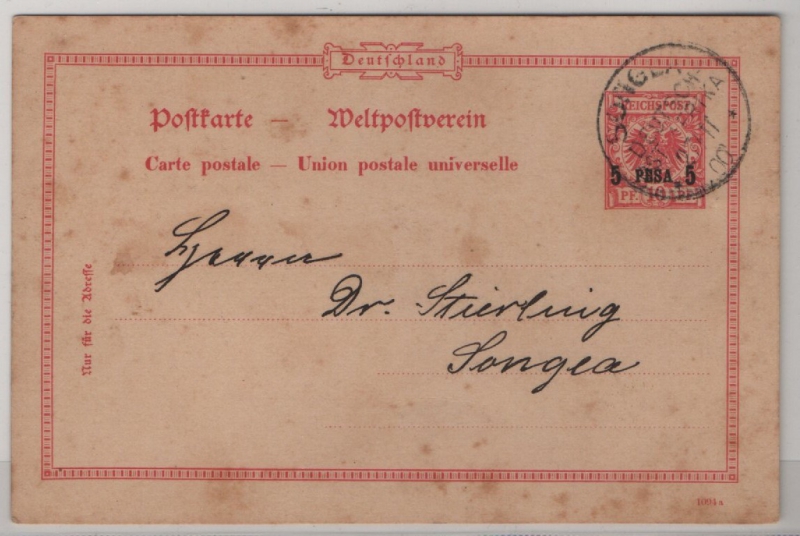 Deutschland
Postkarte — Weltpostverein
Carte postale — Union postale universelle
REICHSPOST
5 PESA 5
PF. 10 PF.
SONGEA
Herrn
Dr. Stierling
Songea
Nur für die Adresse
1094a